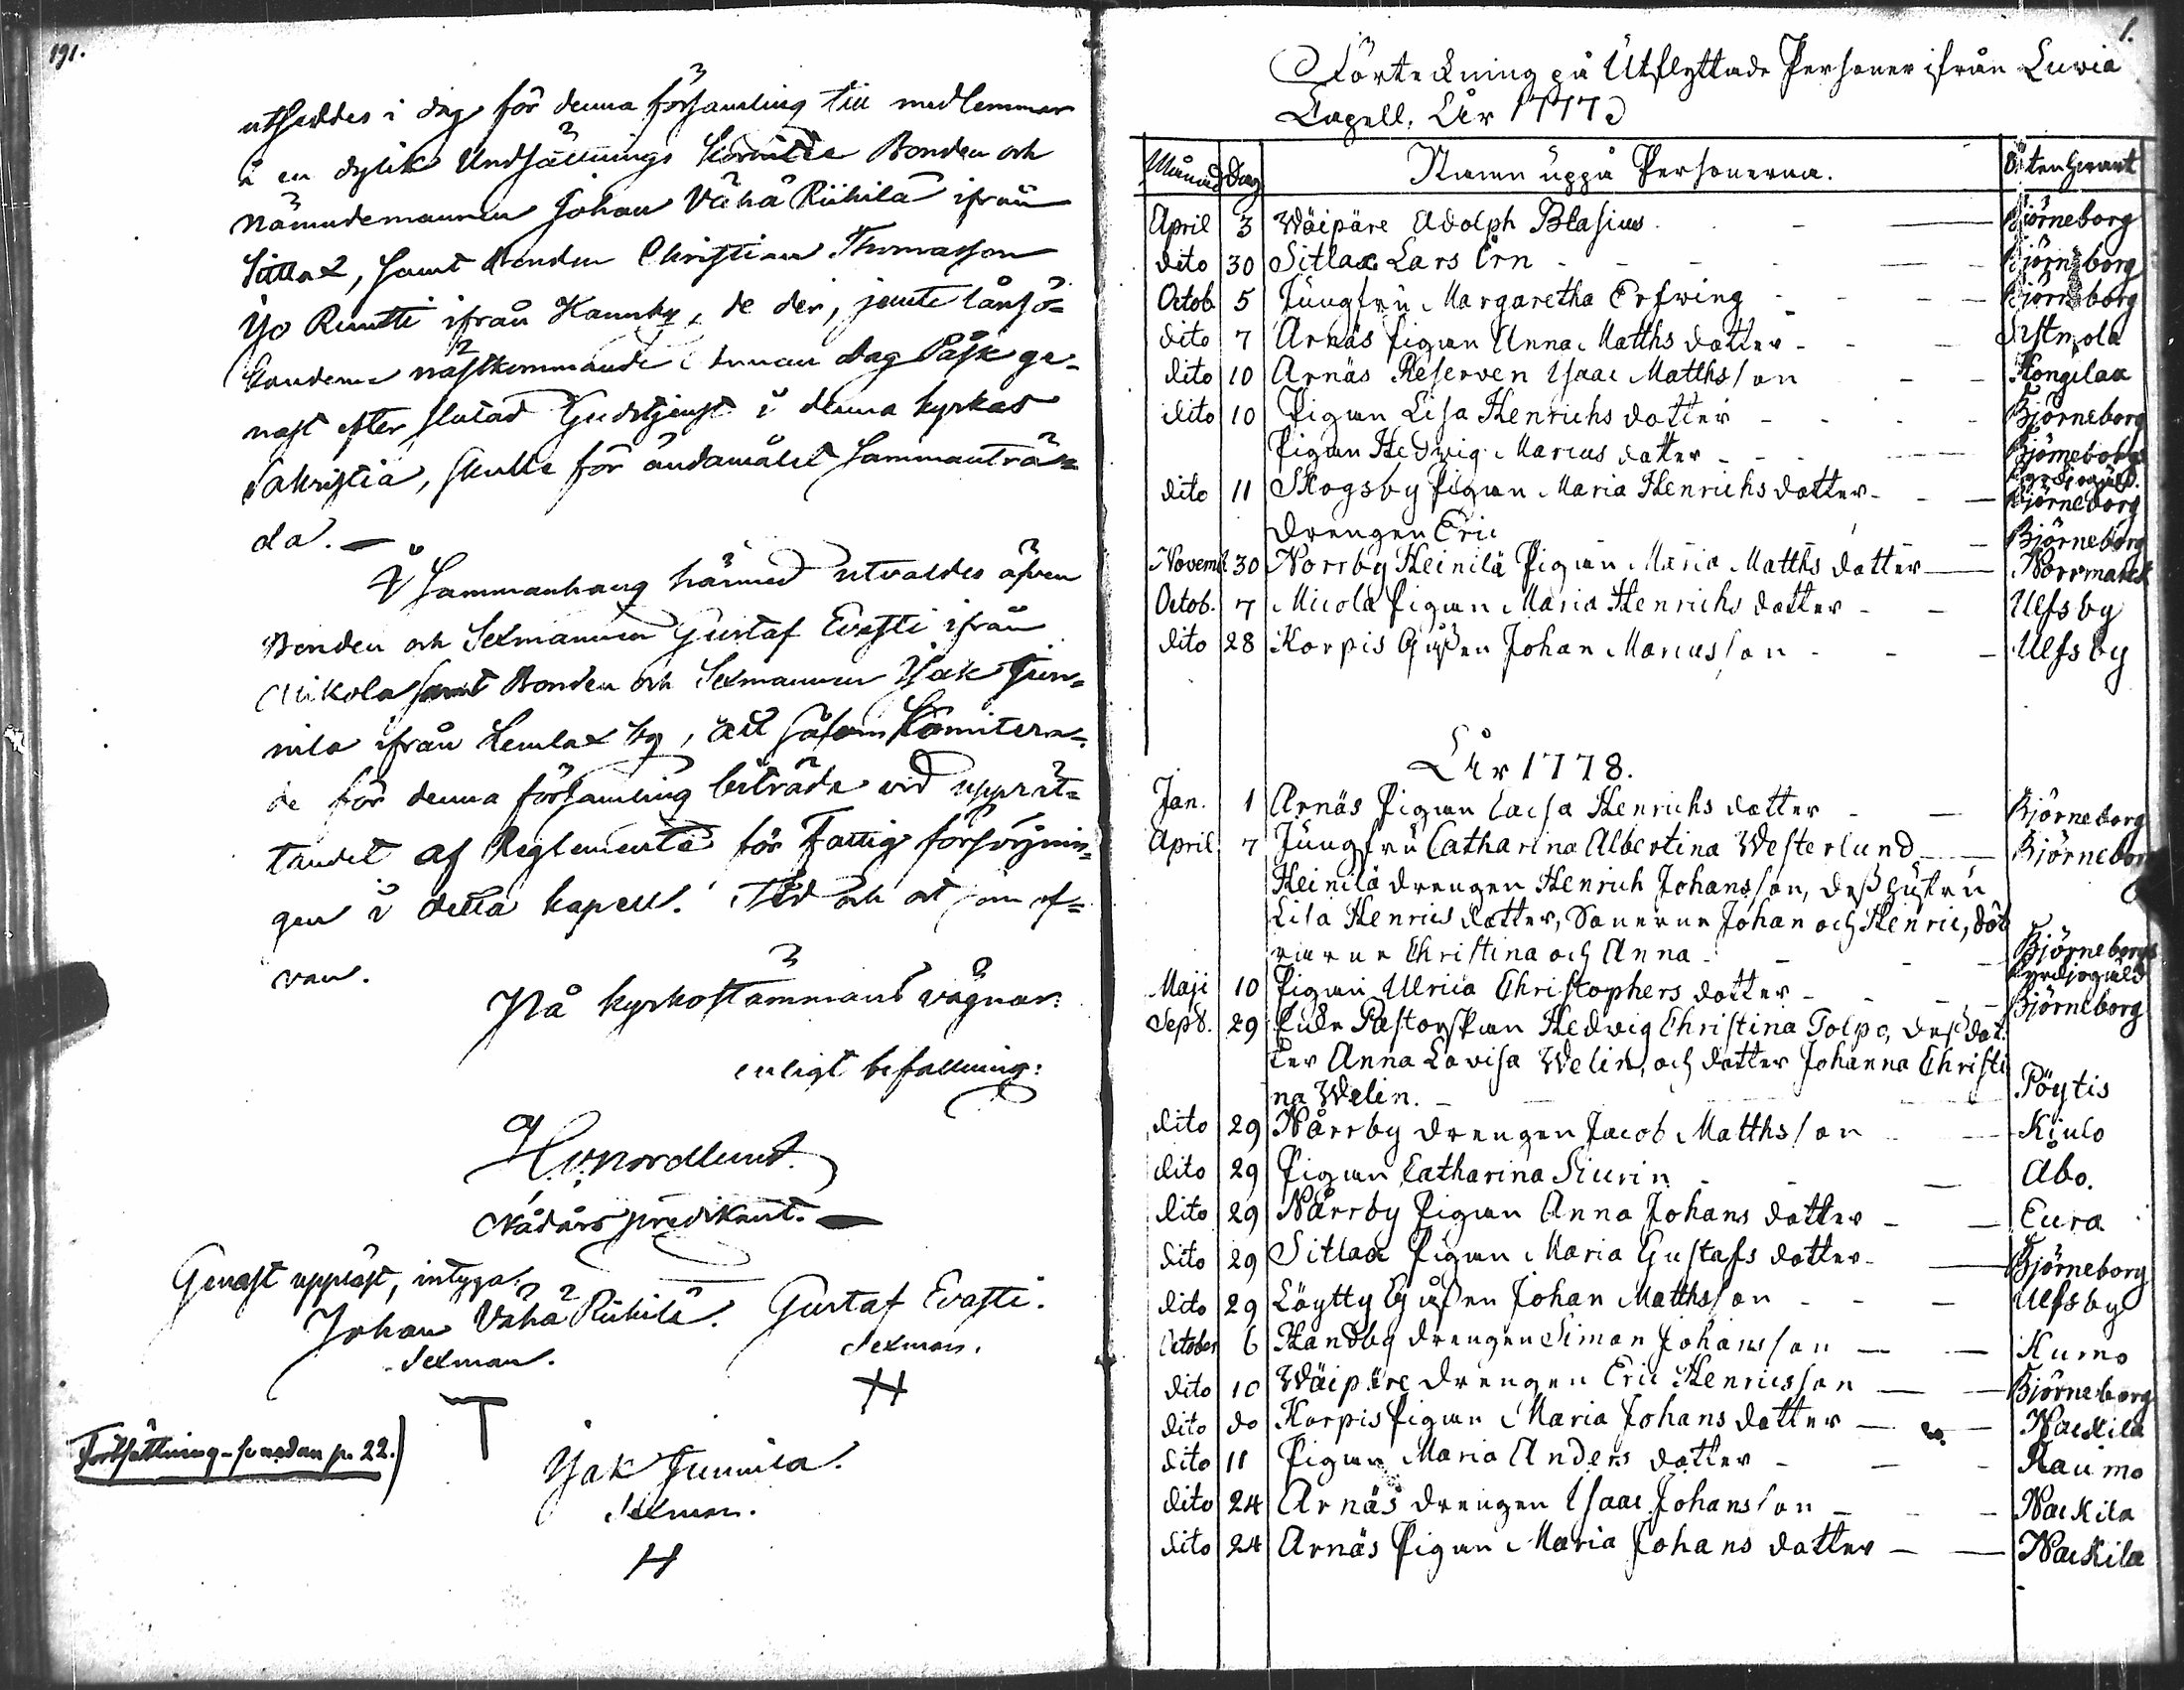 191.
utseddes i dag för denna församling till medlemmar
i en dylik Undsättnings Komitée Bonden och
Nämndemannen Johan Vähä Riihilä ifrån
Sittlax, samt Bonden Christian Thomasson
Yo Runtti ifrån Hannby, de der, jemte lånsö-
kandene nästkommande Annan dag Påsk ge-
nast efter slutad Gudstjenst i denna kyrkas
Sakristia, skulle för ändamålet sammanträ-
da. —
I sammanhang härmed utvaldes äfven
Bonden och Sexmannen Gustaf Evasti ifrån
Mikola samt Bonden och Sexmannen Isak Jun-
nila ifrån Lemlax by, att såsom Komitera-
de för denna församling biträda vid upprät-
tandet af Reglemente för Fattigförsörjnin-
gen i detta kapell. Tid och ort som of-
van.
På kyrkostämmans vägnar:
enligt befallning:
Nordlund.
Nådårs predikant. —
Genast uppläst, intyga:
Johan Vähä Riihilä. Gustaf Evasti.
Sexman. Sexman.
Isak Junnila.
Sexman.
Fortsättning - se nedan p. 22.)
1.
Förteckning på Utflyttade Personer ifrån Luvia
Capell. År 1777
Månad Dag Namn uppå Personerna.
April 3 Wäipäre Adolph Blasius - — Björneborg
dito 30 Sitlax Lars Örn - - - — Björneborg
Octob. 5 Jungfru Margaretha Erfwing - - — Björneborg
dito 7 Arnäs Pigan Anna Matths dotter - - —
dito 10 Arnäs Reserven Isaac Matthsson - - Kongilax
dito 10 Pigan Lisa Henrichs dotter - - - Björneborg
Pigan Hedvig Marcus dotter - - — Björneborgs
dito 11 Skogsby Pigan Maria Henrichs dotter - - — Björneborg
Drengen Eric — Björneborg
Novemb. 30 Norrby Heinilä Pigan Maria Matths dotter — Norrmark
Octob. 7 Micola Pigan Maria Henrichs dotter - - Ulfsby
dito 28 Korpis Gåssen Johan Marcusson - - — Ulfsby
År 1778.
Jan. 1 Arnäs Pigan Caisa Henrichs dotter - — Björneborg
April 7 Jungfru Catharina Albertina Westerlund — Björneborg
Heinilä drengen Henrich Johansson, dess hustru
Lisa Henrics dotter, Sönerne Johan och Henric, döt
rarne Christina och Anna - - - - Björneborgs
Maji 10 Pigan Ulrica Christophers dotter - - - Björneborg
Sept. 29 Enke Pastorskan Hedvig Christina Tolpo, dess dot-
ter Anna Lovisa Welin, och dotter Johanna Christi
na Welin. - — Pöytis
dito 29 Nårrby drengen Jacob Matthsson - — Kiulo
dito 29 Pigan Catharina Siurin - - — Åbo.
dito 29 Nårrby Pigan Anna Johans dotter - — Eura
dito 29 Sitlax Pigan Maria Gustafs dotter - — Björneborg
dito 29 Löytty Gåssen Johan Matthsson - - — Ulfsby
October 6 Handby drengen Simon Johansson — — Kumo
dito 10 Wäipäre Drengen Eric Henricsson — — Björneborg
dito do Korpis Pigan Maria Johans dotter — — Nackila
dito 11 Pigan Maria Anders dotter - — - Raumo
dito 24 Arnäs drengen Isaac Johansson — - - Nackila
dito 24 Arnäs Pigan Maria Johans dotter — — Nackila